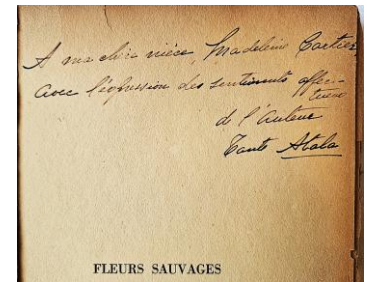 A ma chère nièce, Madeleine Cartier,
avec l'expression des sentiments affec-
tueux
de l'auteur
Tante Atala
FLEURS SAUVAGES